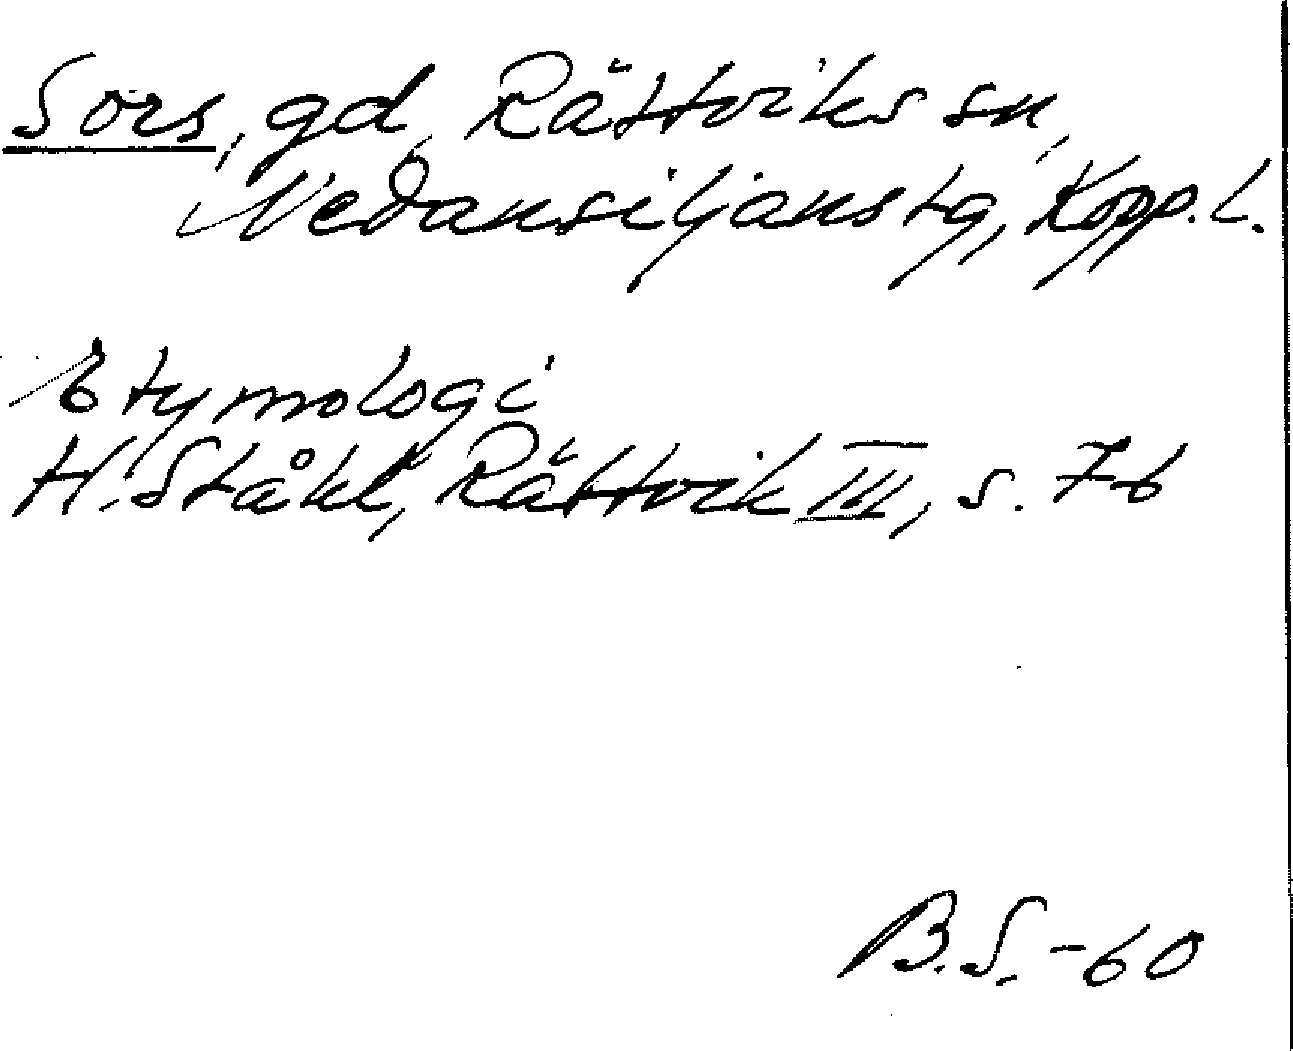 Sörs, gd, Rättviks sn,
Nedansiljans tg, Kopp. l.
Etymologi
H. Ståhl, Rättvik III, s. 76
B.S. -60